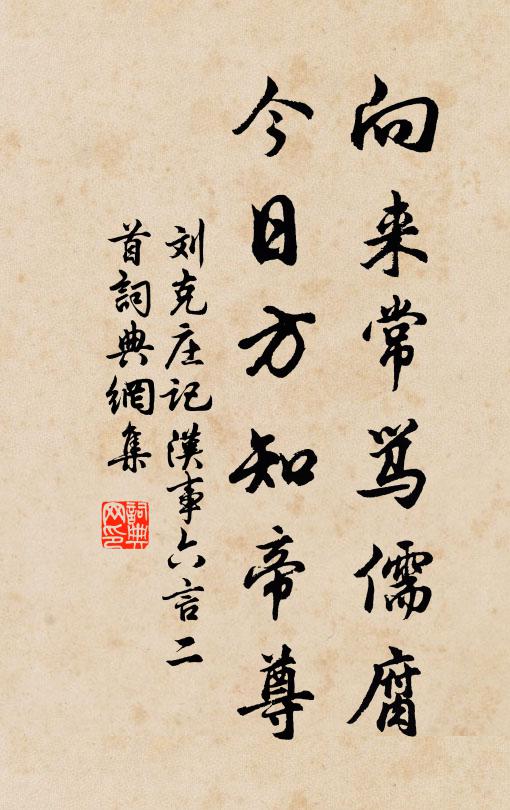 向来常骂儒腐
今日方知帝尊
刘克庄记漢事六言二
首詞典網集
詞典
网印